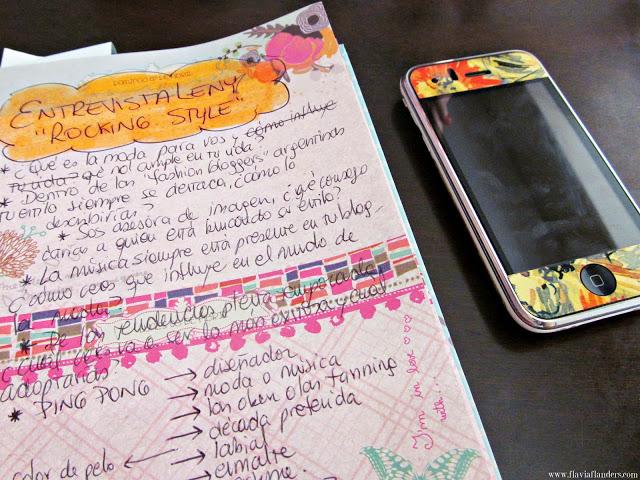 ENTREVISTA LENY
"ROCKING STYLE"
* ¿Qué es la moda para vos y cómo influye
tu vida? qué rol cumple en tu vida?
* Dentro de las "fashion bloggers" argentinas
tu estilo siempre se destaca, ¿cómo lo
describirías?
* Sos asesora de imagen, ¿qué consejo
darías a quien está buscando su estilo?
* La música siempre está presente en tu blog
¿cómo crees que influye en el mundo de
la moda?
* De las tendencias para
¿cuál crees va a ser la más exitosa y cual
adoptarías?
* PING PONG → diseñador
→ moda o música
→ las oken o las fanning
→ década preferida
→ labial
color de pelo ← → esmalte
I'm in love
with...
www.flaviaflanders.com